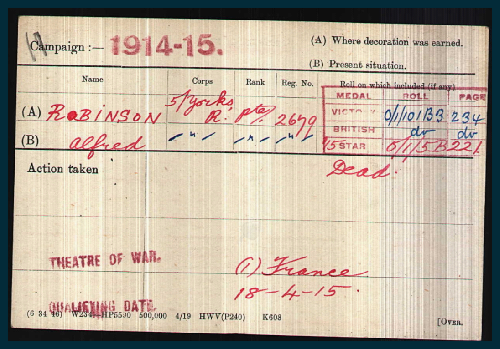 Campaign :— 1914-15.
(A) Where decoration was earned.
(B) Present situation.
Name Corps Rank Reg. No. Roll on which included (if any)
MEDAL ROLL PAGE
(A) ROBINSON 5/Yorks. R. Pte. 2679
VICTORY 0/1/101B3 234
BRITISH do do
15 STAR 0/1/5B 221
(B) Alfred
Action taken
Dead.
THEATRE OF WAR. (1) France
18-4-15.
QUALIFYING DATE.
(6 34 46) W234—HP5590 500,000 4/19 HWV(P240) K608
[OVER.